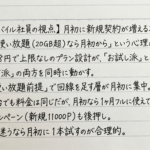 バイル社員の視点】月初に新規契約が増える
使い放題（20GB超）なら月初から」という心理
円で上限なしのプラン設計が、「お試し派」と
派」の両方を同時に動かす。
使い放題前提」で回線を足す層が月初に集中。
でも料金は同じだが、月初なら1ヶ月フルに使えて
ンペーン（新規11000P）も後押し。
迷うなら月初に1本試すのが合理的。